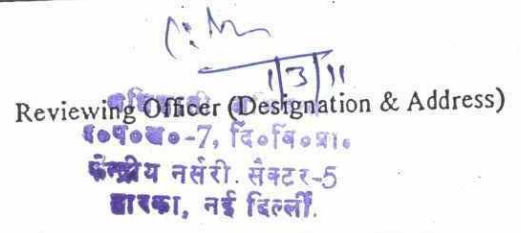 1/3/11
Reviewing Officer (Designation & Address)
-7, दि०वि०प्रा०
केन्द्रीय नर्सरी. सैक्टर-5
द्वारका, नई दिल्ली.